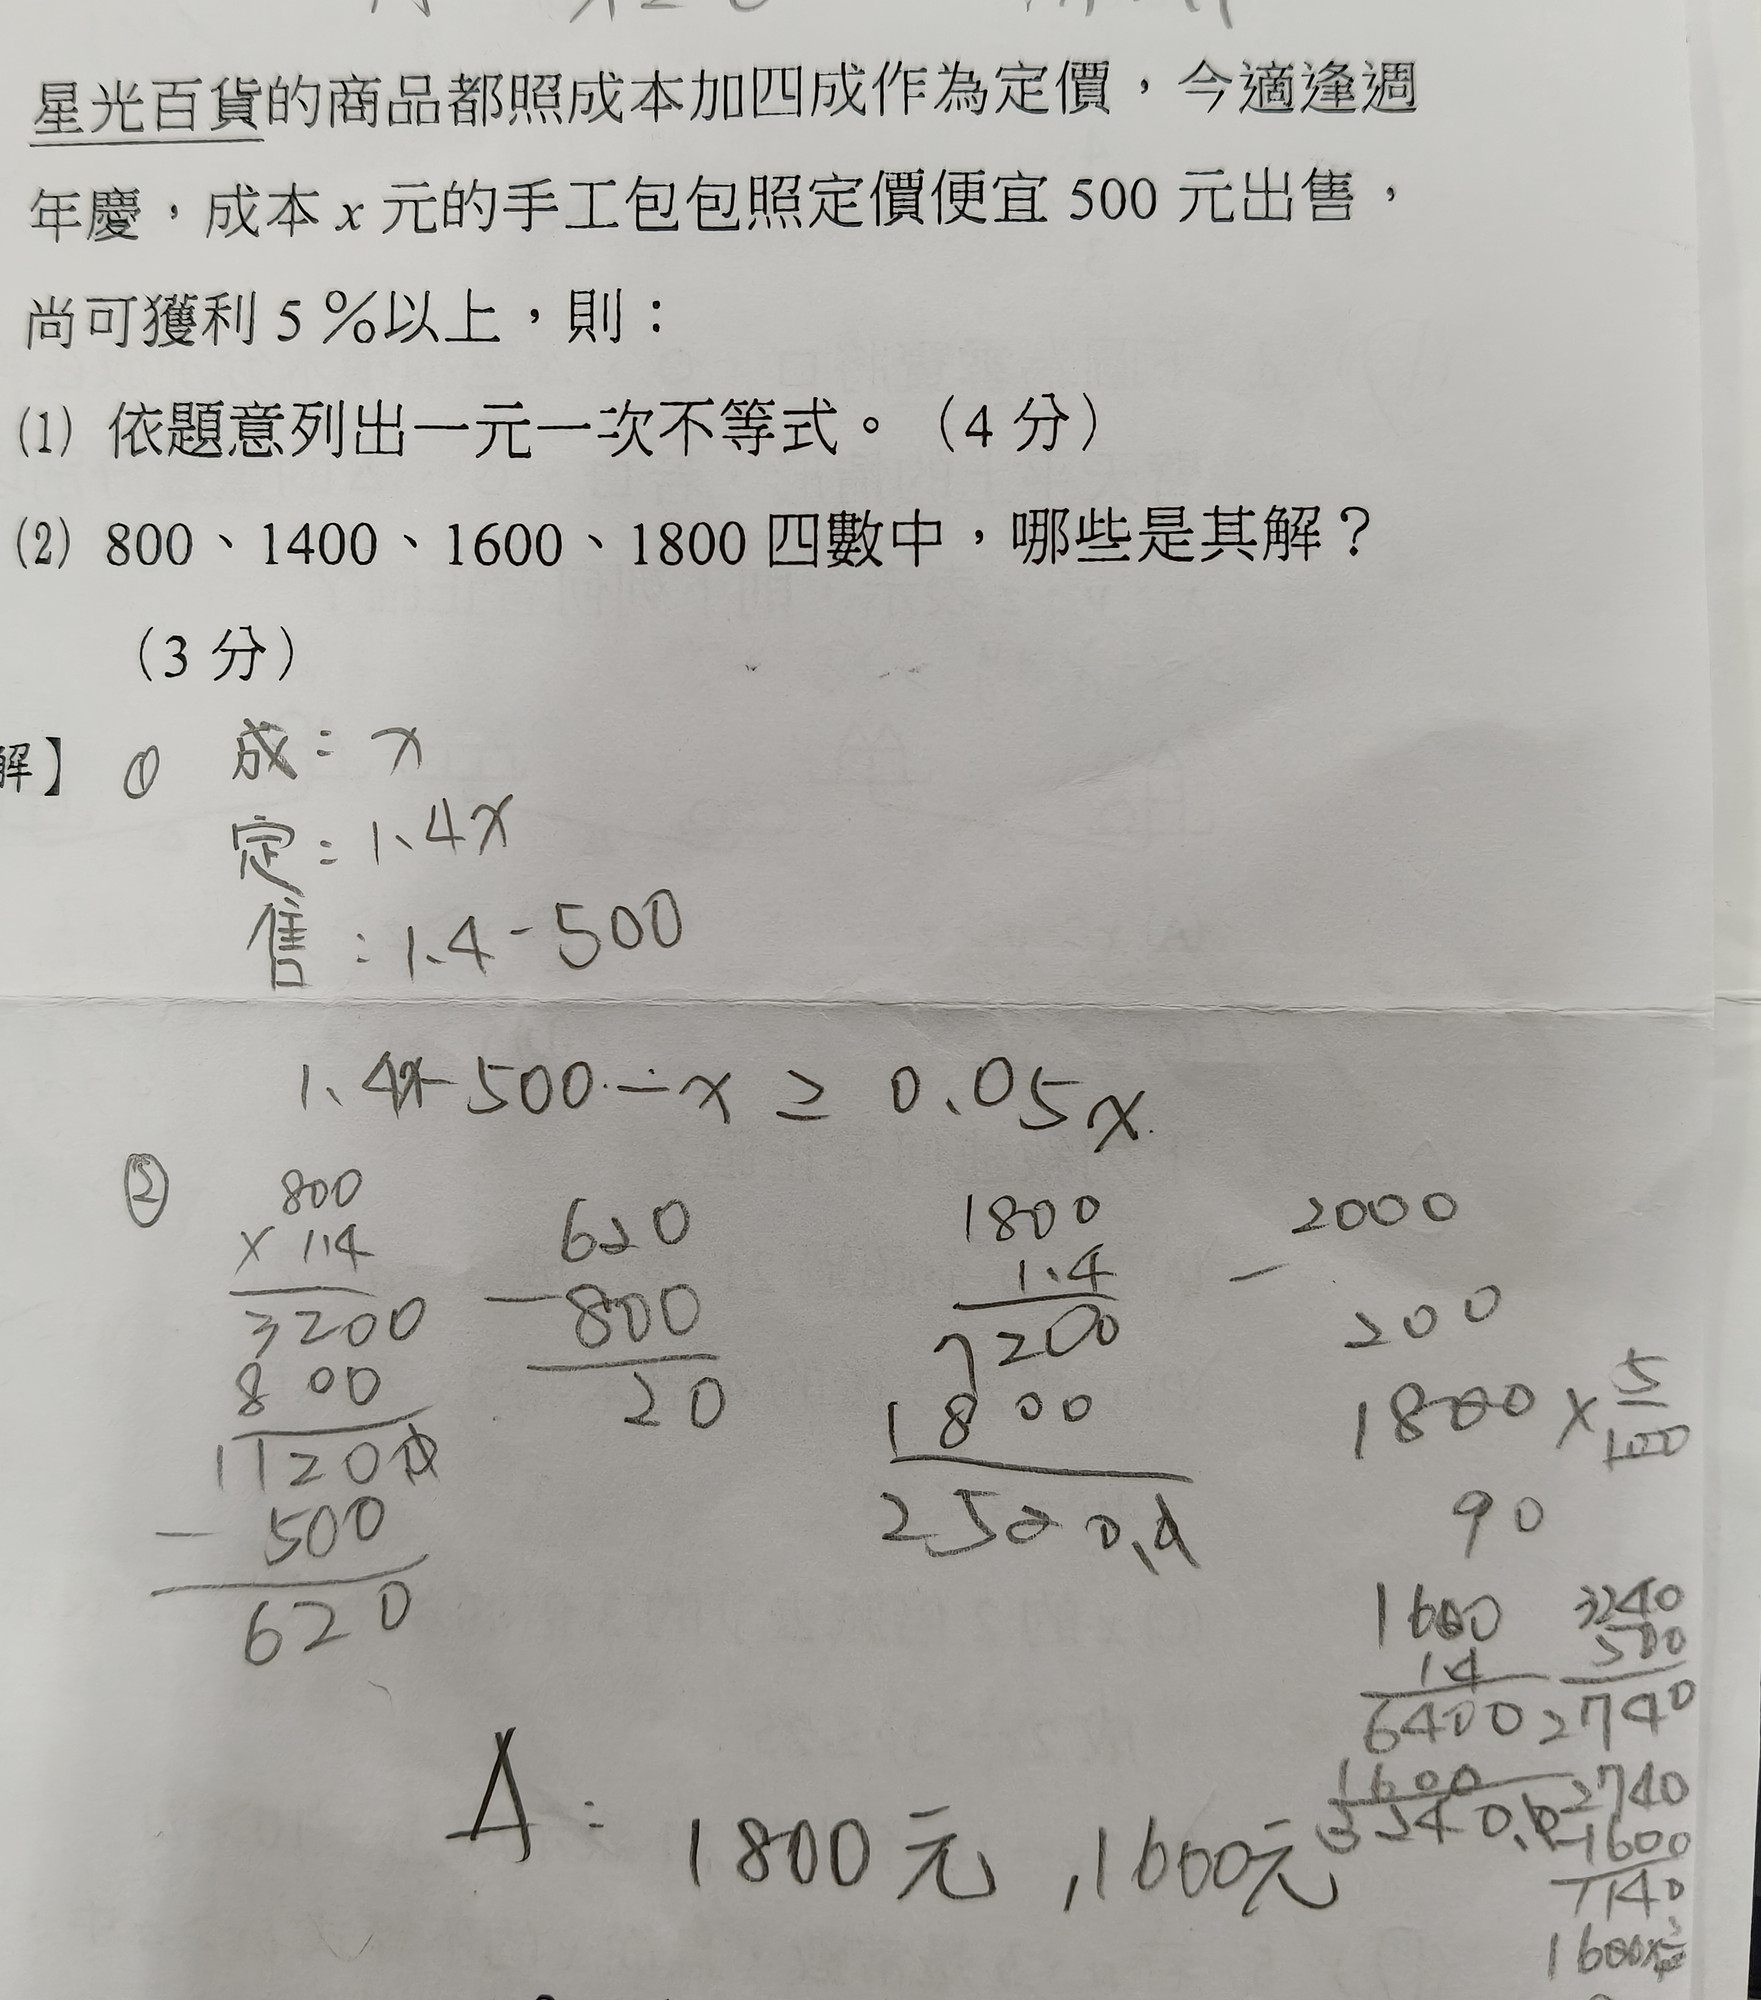 星光百貨的商品都照成本加四成作為定價，今適逢週
年慶，成本 x 元的手工包包照定價便宜 500 元出售，
尚可獲利 5％以上，則：
(1) 依題意列出一元一次不等式。（4 分）
(2) 800、1400、1600、1800 四數中，哪些是其解？
（3 分）
解】 ① 成：x
定：1.4x
售：1.4-500
1.4x-500-x ≥ 0.05x
②
800
× 1.4
3200
800
1120
- 500
620
620
- 800
20
1800
1.4
7200
1800
2520
- 2000
200
1800 × 5/100
90
1600
1.4
6400
1600
3240
500
2740
2740
-1600
1140
A：1800元,1600元